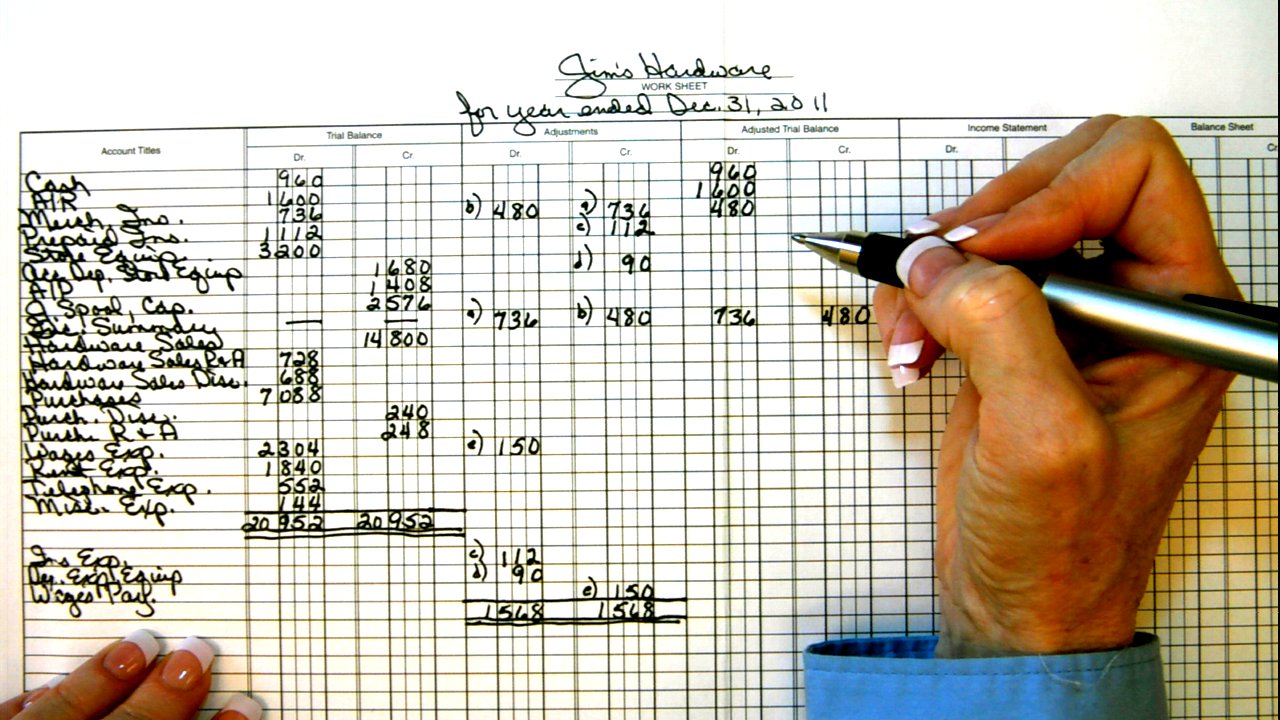 Jim's Hardware
WORK SHEET
for year ended Dec. 31, 2011
Account Titles Trial Balance Adjustments Adjusted Trial Balance Income Statement Balance Sheet
Dr. Cr. Dr. Cr. Dr. Cr. Dr. Cr
Cash 960 960
A/R 1600 1600
Merch. Ins. 736 b) 480 a) 736 480
Prepaid Ins. 1112 c) 112
Store Equip. 3200
Acc. Dep. Store Equip 1680 d) 90
A/P 1408
J. Spool, Cap. 2576
Summary — — a) 736 b) 480 736 480
Hardware Sales 14800
Hardware Sales R&A 728
Hardware Sales Disc. 688
Purchases 7088
Purch. Disc. 240
Purch. R & A 248
Wages Exp. 2304 e) 150
Rent Exp. 1840
Telephone Exp. 552
Misc. Exp. 144
20952 20952
Ins Exp. c) 112
Dep. Exp. Equip d) 90
Wages Pay. e) 150
1568 1568